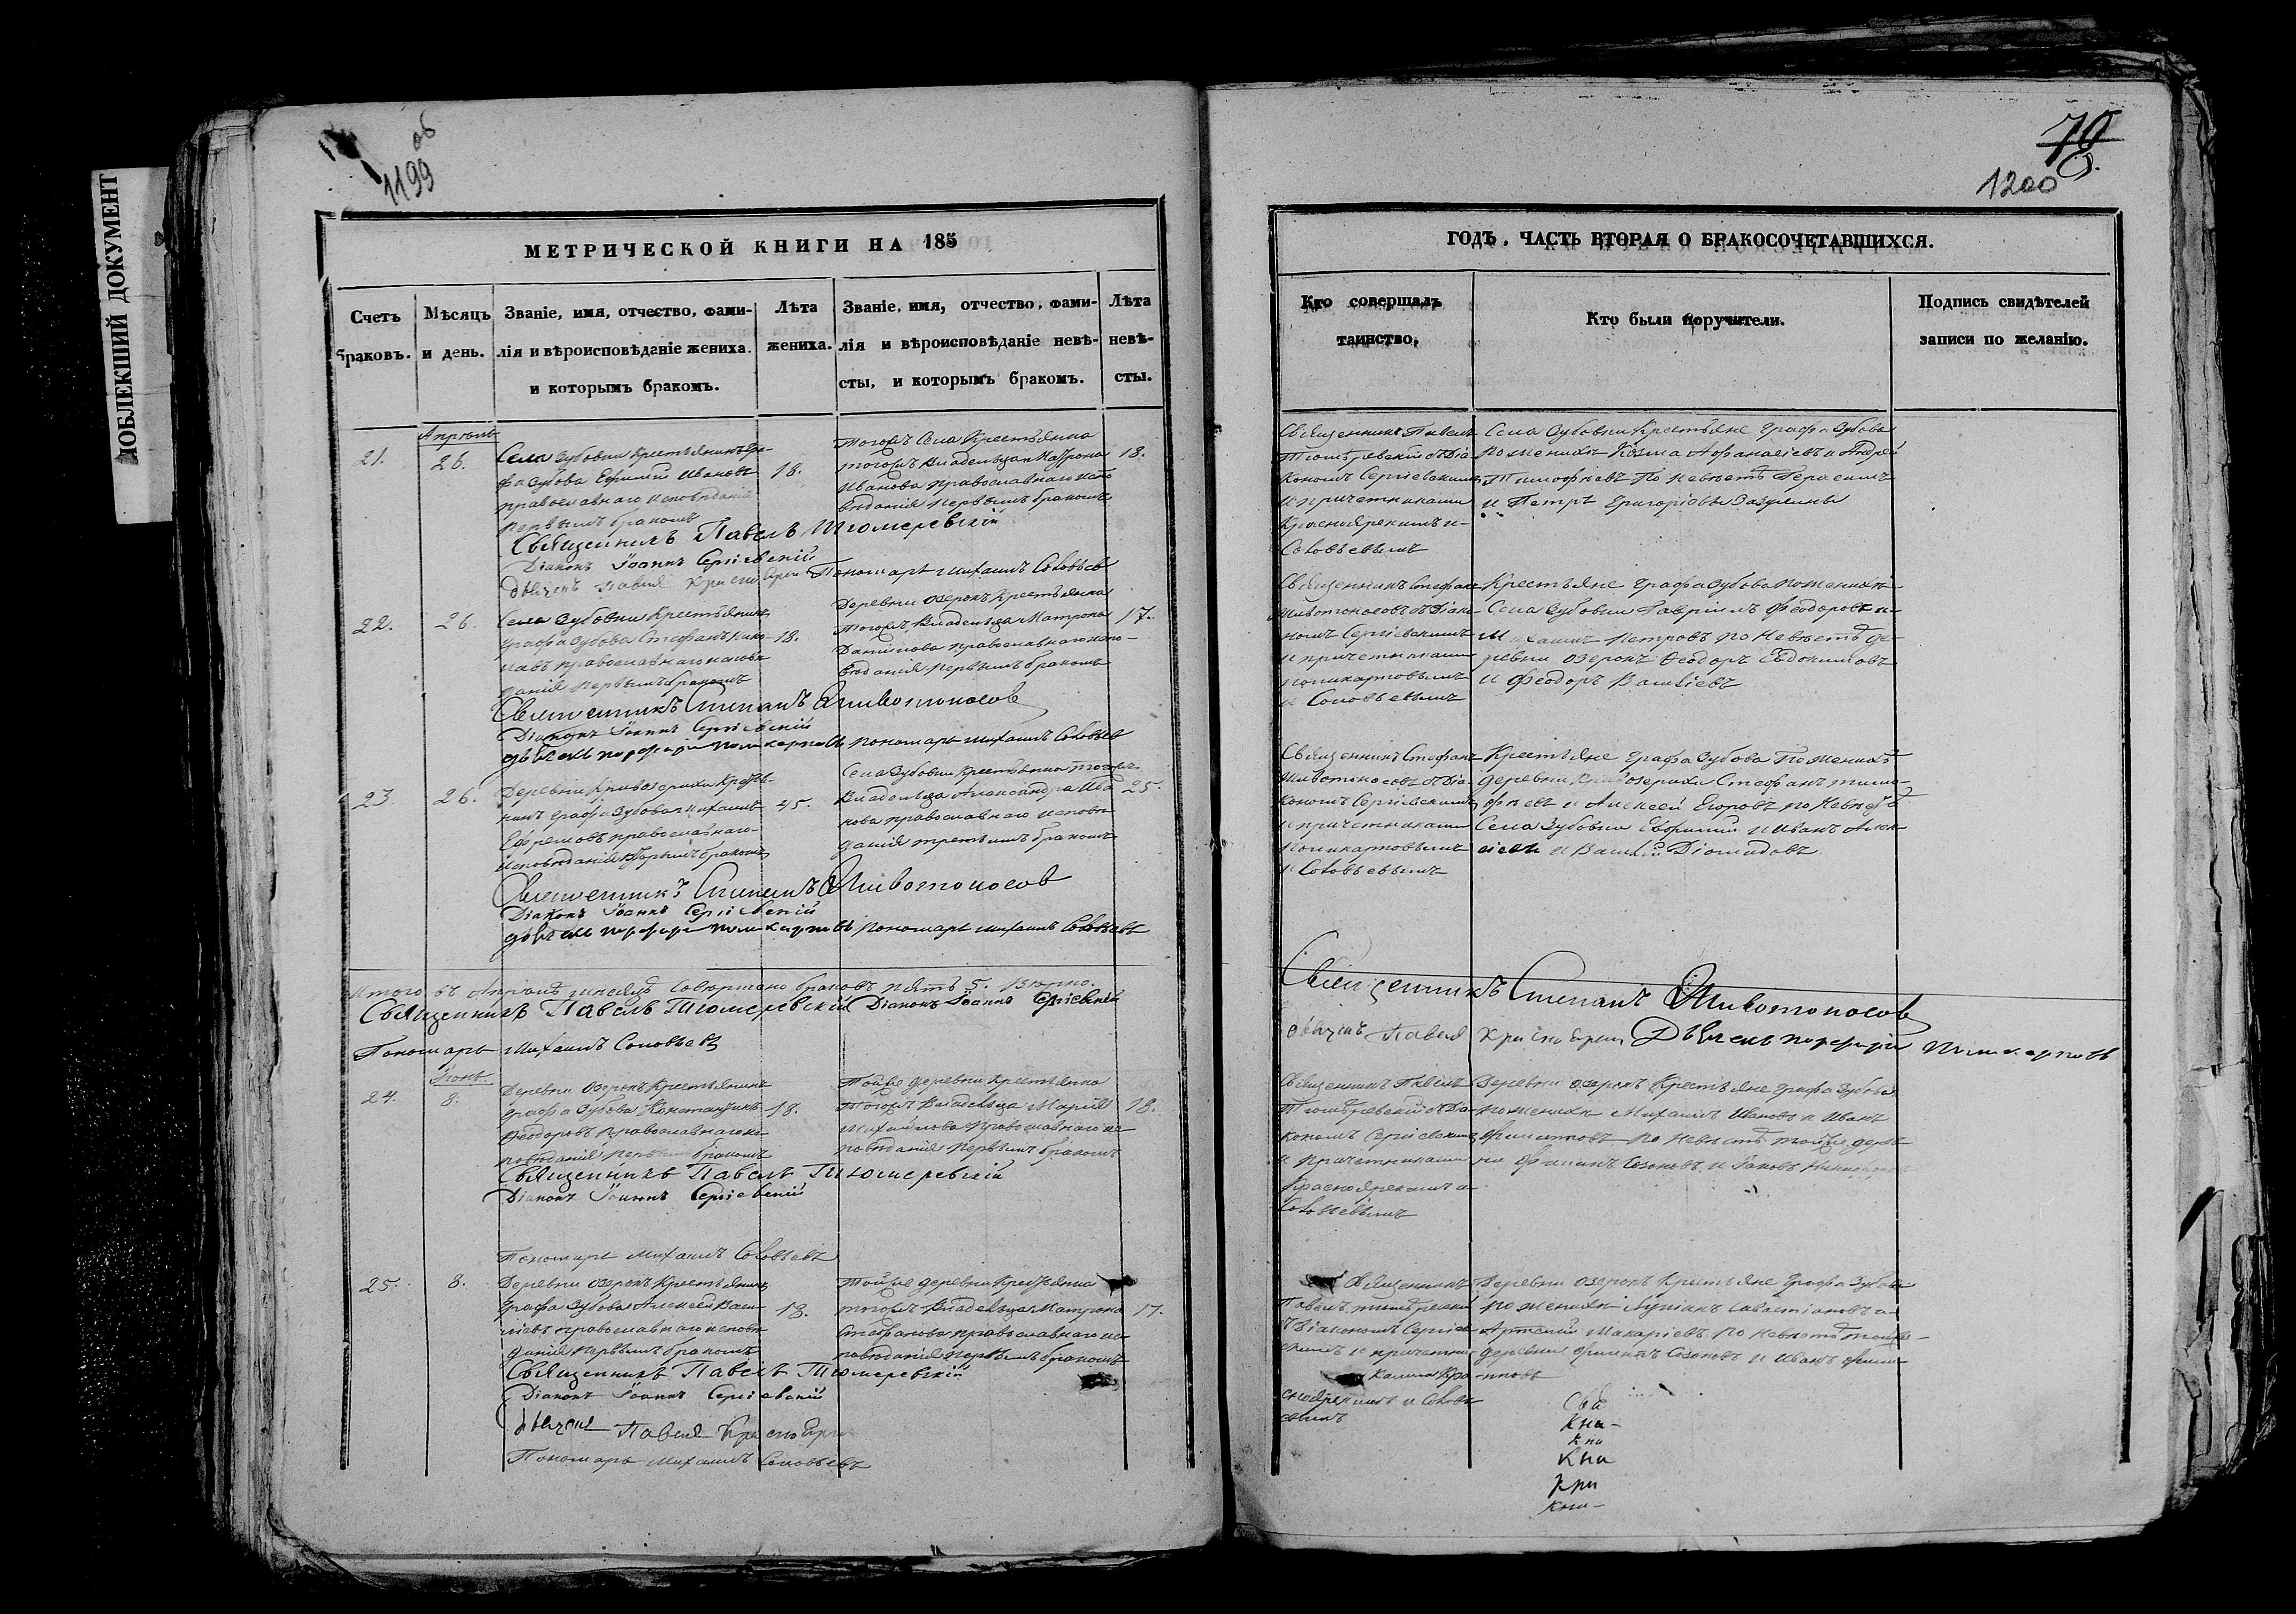 ЮБЛЕКШИЙ ДОКУМЕНТ
об
1199
МЕТРИЧЕСКОЙ КНИГИ НА 185
Счетъ браковъ.
Мѣсяцъ и день.
Званіе, имя, отчество, фами-
лія и вѣроисповѣданіе жениха.
и которымъ бракомъ.
Лѣта
жениха.
Званіе, имя, отчество, фами-
лія и вѣроисповѣданіе невѣ-
сты, и которымъ бракомъ.
Лѣта
невѣ-
сты.
Апрѣль
21.
26.
Села Зубовки Крестьянинъ Гра-
фа Зубова Ефимій Ивановъ
православнаго исповѣданія
первымъ бракомъ
18.
Тогожъ Села Крестьянка
тогожъ Владельца Матрона
Иванова православнаго испо
вѣданія первымъ бракомъ
18.
Священникъ Павелъ Тюмеревскій
Діаконъ Іоаннъ Сергіевскій
Пономарь Михаилъ Соловьев
22.
26.
Села Зубовки Крестьянинъ
Графа Зубова Стефанъ Нико-
лаевъ православнаго исповѣ
данія первымъ бракомъ
18.
Деревни Озерокъ Крестьянка
тогожъ Владельца Матрона
Данилова православнаго испо-
вѣданія первымъ бракомъ
17.
Священникъ Степанъ Животоносов
Діаконъ Іоаннъ Сергіевскій
дьячекъ порфирій поликарповъ пономарь михаилъ Соловьев
23
26.
Деревни Кривозерихи Крестья-
нинъ Графа Зубова Михаилъ
Ефремовъ православнаго
исповѣданія вторымъ бракомъ
45.
Села Зубовки Крестьянка тогожъ
Владельца Александра Ива
нова православнаго исповѣ
данія третьимъ бракомъ
25.
Священникъ Степанъ Животоносов
Діаконъ Іоаннъ Сергіевскій
дьячекъ порфирій поликарповъ пономарь михаилъ Соловьевъ
Итого въ Апрѣлѣ мѣсяцѣ Совершено браковъ пять 5. Вѣрно.
Священникъ Павелъ Тюмеревскій Діаконъ Іоаннъ Сергіевскій
Пономарь Михаилъ Соловьевъ
Іюнь.
24.
8.
Деревни Озерокъ Крестьянинъ
Графа Зубова Константинъ
Ѳеодоровъ православнаго ис-
повѣданія первымъ бракомъ
18.
Тойже деревни Крестьянка
Тогожъ Владельца Марія
Михайлова православнаго ис
повѣданія первымъ бракомъ
18.
Священникъ Павелъ Тюмеревскій
Діаконъ Іоаннъ Сергіевскій
Пономарь Михаилъ Соловьевъ
25.
8.
Деревни Озерокъ Крестьянинъ
Графа Зубова Алексей Васи-
ліевъ православнаго исповѣ
данія первымъ бракомъ
18.
Тойже деревни Крестьянка
тогожъ Владельца Матрона
Стефанова православнаго ис
повѣданія первымъ бракомъ
17.
Священникъ Павелъ Тюмеревскій
Діаконъ Іоаннъ Сергіевскій
дьячекъ Павелъ
Пономарь Михаилъ Соловьевъ
78.
1200
ГОДЪ, ЧАСТЬ ВТОРАЯ О БРАКОСОЧЕТАВШИХСЯ.
Кто совершалъ
таинство.
Кто были поручители.
Подпись свидѣтелей
записи по желанію.
Священникъ Павелъ
Тюмѣревскій съ Діа
кономъ Сергіевскимъ
и причетниками
Красноярскимъ и-
Соловьевымъ
Села Зубовки Крестьяне Графа Зубова
по женихѣ Козма Афанасіевъ и Андрей
Тимофѣевъ по невѣстѣ Герасимъ
и Петръ Григоріевы
Священникъ Стефанъ
Животоносовъ съ Діако-
номъ Сергіевскимъ
и причетниками
поликарповымъ
и Соловьевымъ
Крестьяне Графа Зубова по женихѣ
Села Зубовки Гавріилъ Феодоровъ и-
Михаилъ петровъ по невѣстѣ де-
ревни Озерокъ Ѳеодоръ Евдокимовъ
и Феодоръ Василіевъ
Священникъ Стефанъ
Животоносовъ съ Діа-
кономъ Сергіевскимъ
и причетниками
поликарповымъ
и Соловьевымъ
Крестьяне Графа Зубова по женихѣ
деревни Кривозерихи Стефанъ тимо-
фѣевъ и Алексей Егоровъ по невѣстѣ
Села Зубовки Ефимій и Иванъ Алек-
сіевы и Василій Діомидовъ
Священникъ Степанъ Животоносов
дьячекъ Павелъ
Дьячекъ порфирій поликарповъ
Священникъ Павелъ
Тюмѣревскій съ Діа-
кономъ Сергіевскимъ
и причетниками
Красноярскимъ и
Соловьевымъ
Деревни Озерокъ Крестьяне Графа Зубова
по женихѣ Михаилъ Ивановъ и Иванъ
Филиповъ по невѣстѣ тойже дерев
ни Филипъ Созоновъ и Іаковъ
Священникъ
Павелъ
съ Діакономъ Сергіев
скимъ и причетни-
ками Кра-
сноярскимъ и Соловь
евымъ
Деревни Озерокъ Крестьяне Графа Зубова
по женихѣ Савастіановъ и-
Артемій Макаріевъ по невѣстѣ тойже-
деревни Филипъ Созоновъ и Иванъ Фили-
повъ
Свя
Кни-
Кни
Кни
Кни-